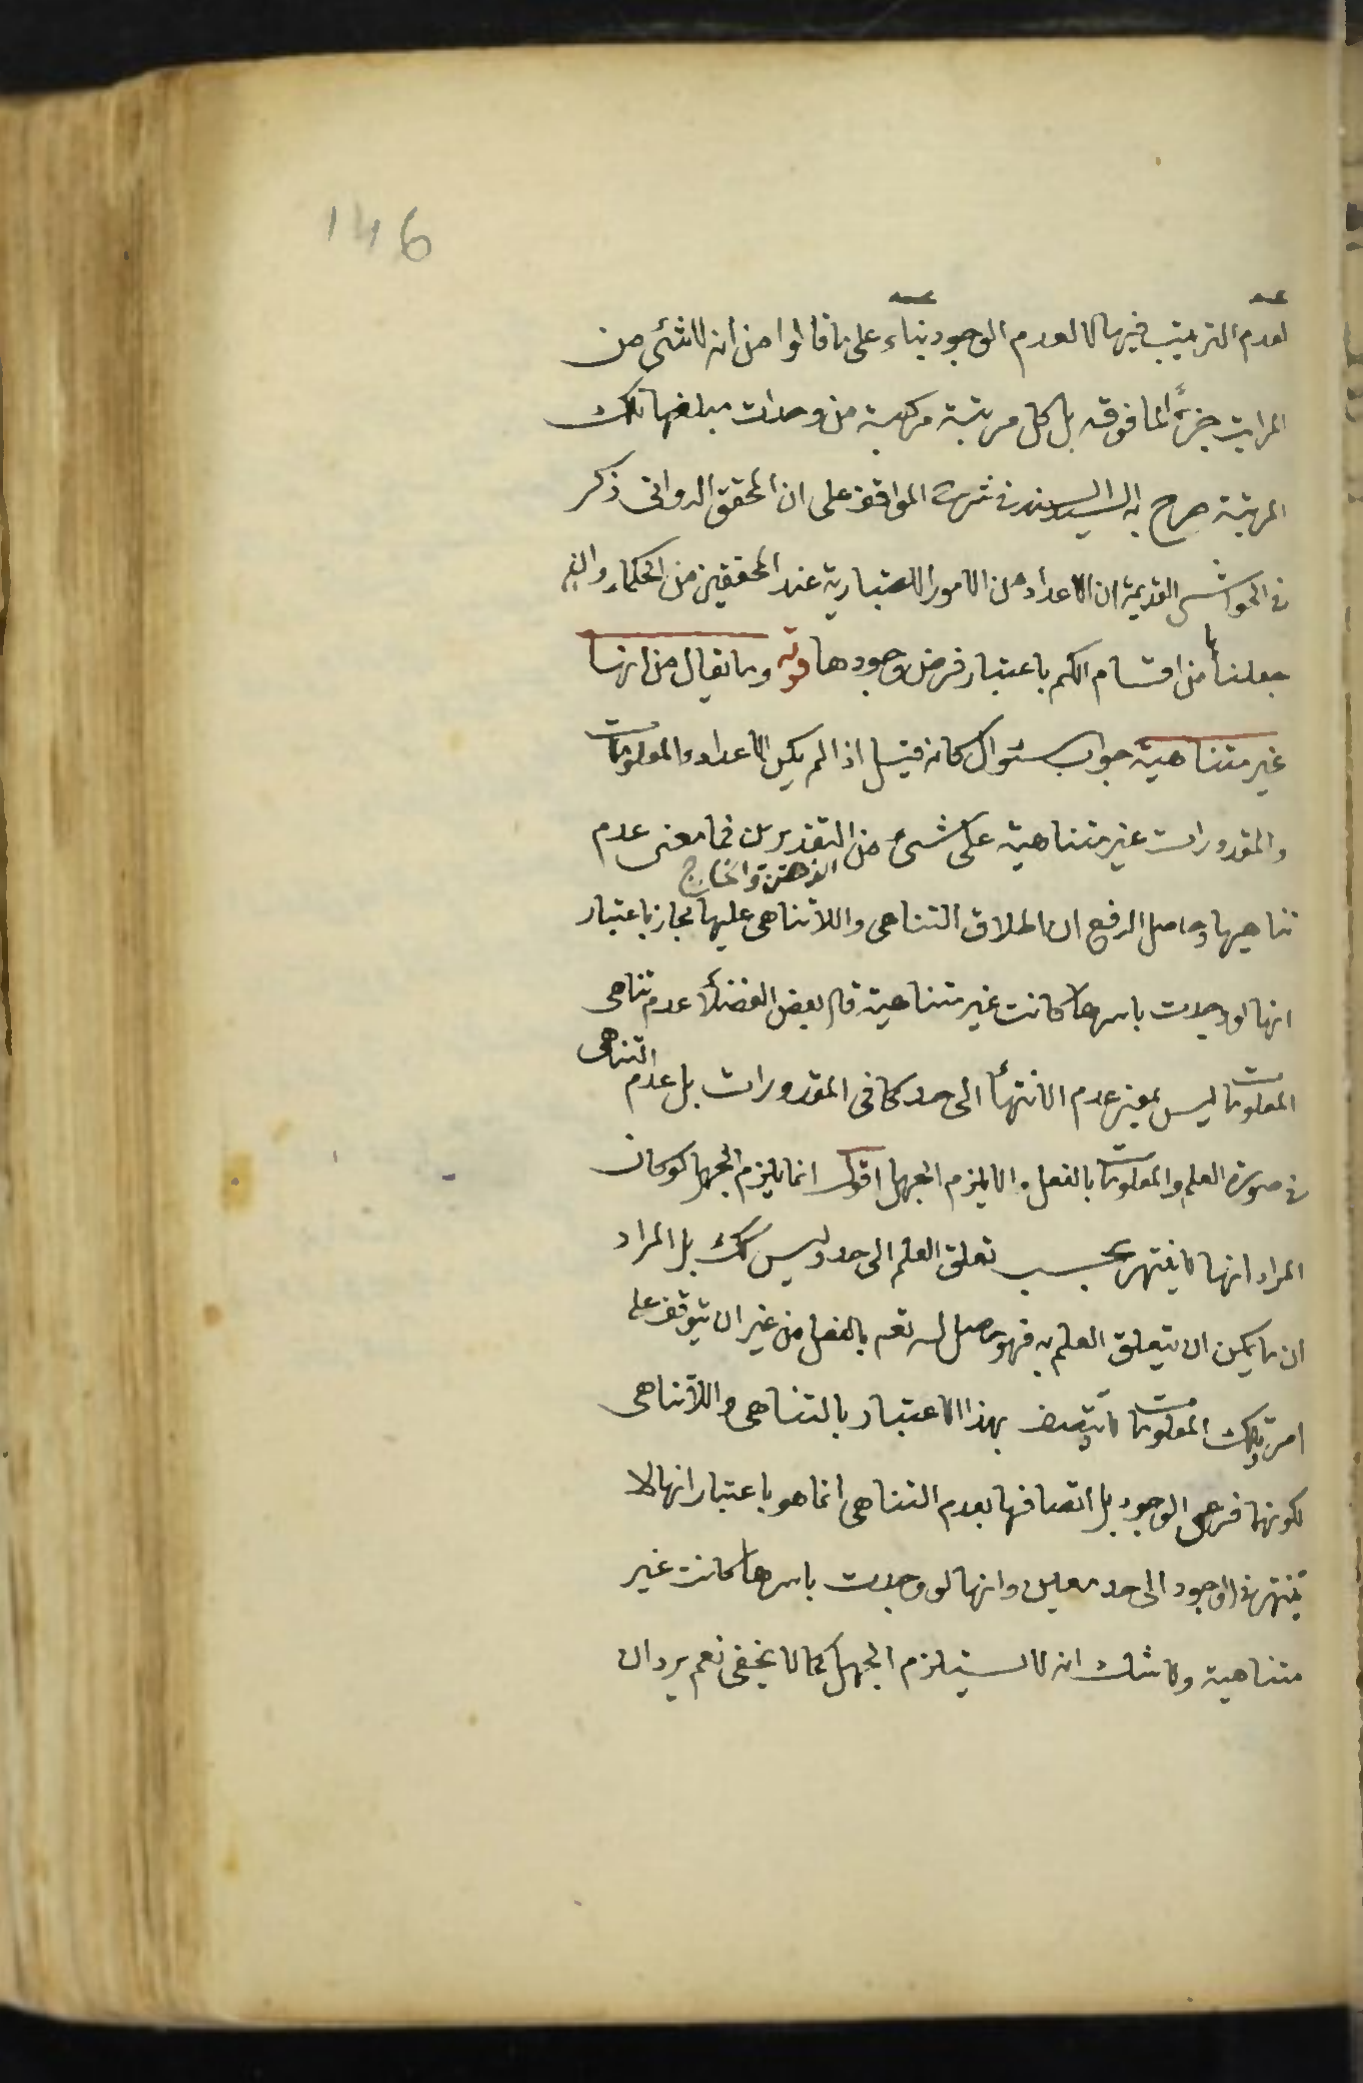 146
لعدم الترتيب فيها لا لعدم الوجود بناء على ما قالوا من انه لا شئ من
المراتب جزءً لما فوقه بل كل مرتبة مركبة من وحدات مبلغها تلك
المرتبة صرح به السيد السند فى شرح المواقف على ان المحقق الدوانى ذكر
فى الحواشى القديمة ان الاعداد من الامور الاعتبارية عند المحققين من الحكماء وانهم
جعلوها من اقسام الكم باعتبار فرض وجودها قوله وما يقال من انها
غير متناهية جواب سئوال كانه قيل اذا لم يكن الاعداد والمعلومات
والمقدورات غير متناهية على شئ من التقديرين فما معنى عدم
الذهن والخارج
تناهيها وحاصل الدفع ان اطلاق التناهى واللاتناهى عليها مجاز باعتبار
انها لو وجدت باسرها كانت غير متناهية قال بعض الفضلاء عدم تناهى
المعلومات ليس بمعنى عدم الانتهاء الى حد كما فى المقدورات بل عدم التناهى
فى صورة العلم والمعلومات بالفعل والا يلزم الجهل اقول انما يلزم الجهل لو كان
المراد انها لا ينتهى بحسب تعلق العلم الى حد وليس كك بل المراد
ان ما يمكن ان يتعلق العلم به فهو حاصل له تعم بالفعل من غير ان يتوقف على
امر وتلك المعلومات لا يتصف بهذا الاعتبار بالتناهى واللاتناهى
لكونهما فرعى الوجود بل اتصافها بعدم التناهى انما هو باعتبار انها لا
ينتهى فى الوجود الى حد معين وانها لو وجدت باسرها كانت غير
متناهية ولا شك انه لا يستلزم الجهل كما لا يخفى نعم يرد ان